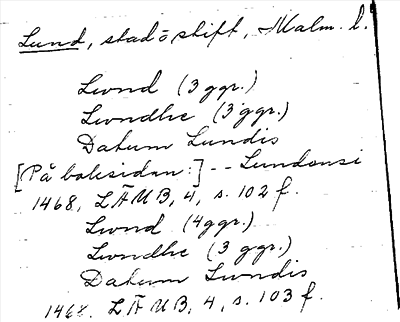 Lund, stad o stift, Malm. l.
Lwnd (3 ggr.)
Lwndhe (3 ggr.)
Datum Lundis
[På baksidan:] -- Lundensi
1468, LÄUB, 4, s. 102 f.
Lwnd (4ggr.)
Lwndhe (3 ggr.)
Datum Lwndis
1468. LÄUB, 4, s. 103 f.